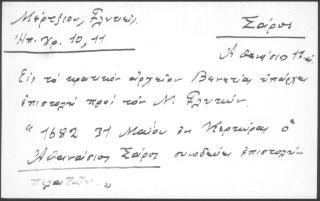 Μέρτζιου, Γλυκύν.
Ἠπ. Χρ. 10, 11
Σάρος
Ἀθανάσιος
Εἰς τό κρατικόν ἀρχεῖον Βενετίας ὑπάρχει
ἐπιστολή πρός τόν Ν. Γλυκύν.
"1682 31 Μαΐου ἐκ Κερκύρας ὁ
Ἀθανάσιος Σάρος συνοδεύει ἐπιστολήν
"